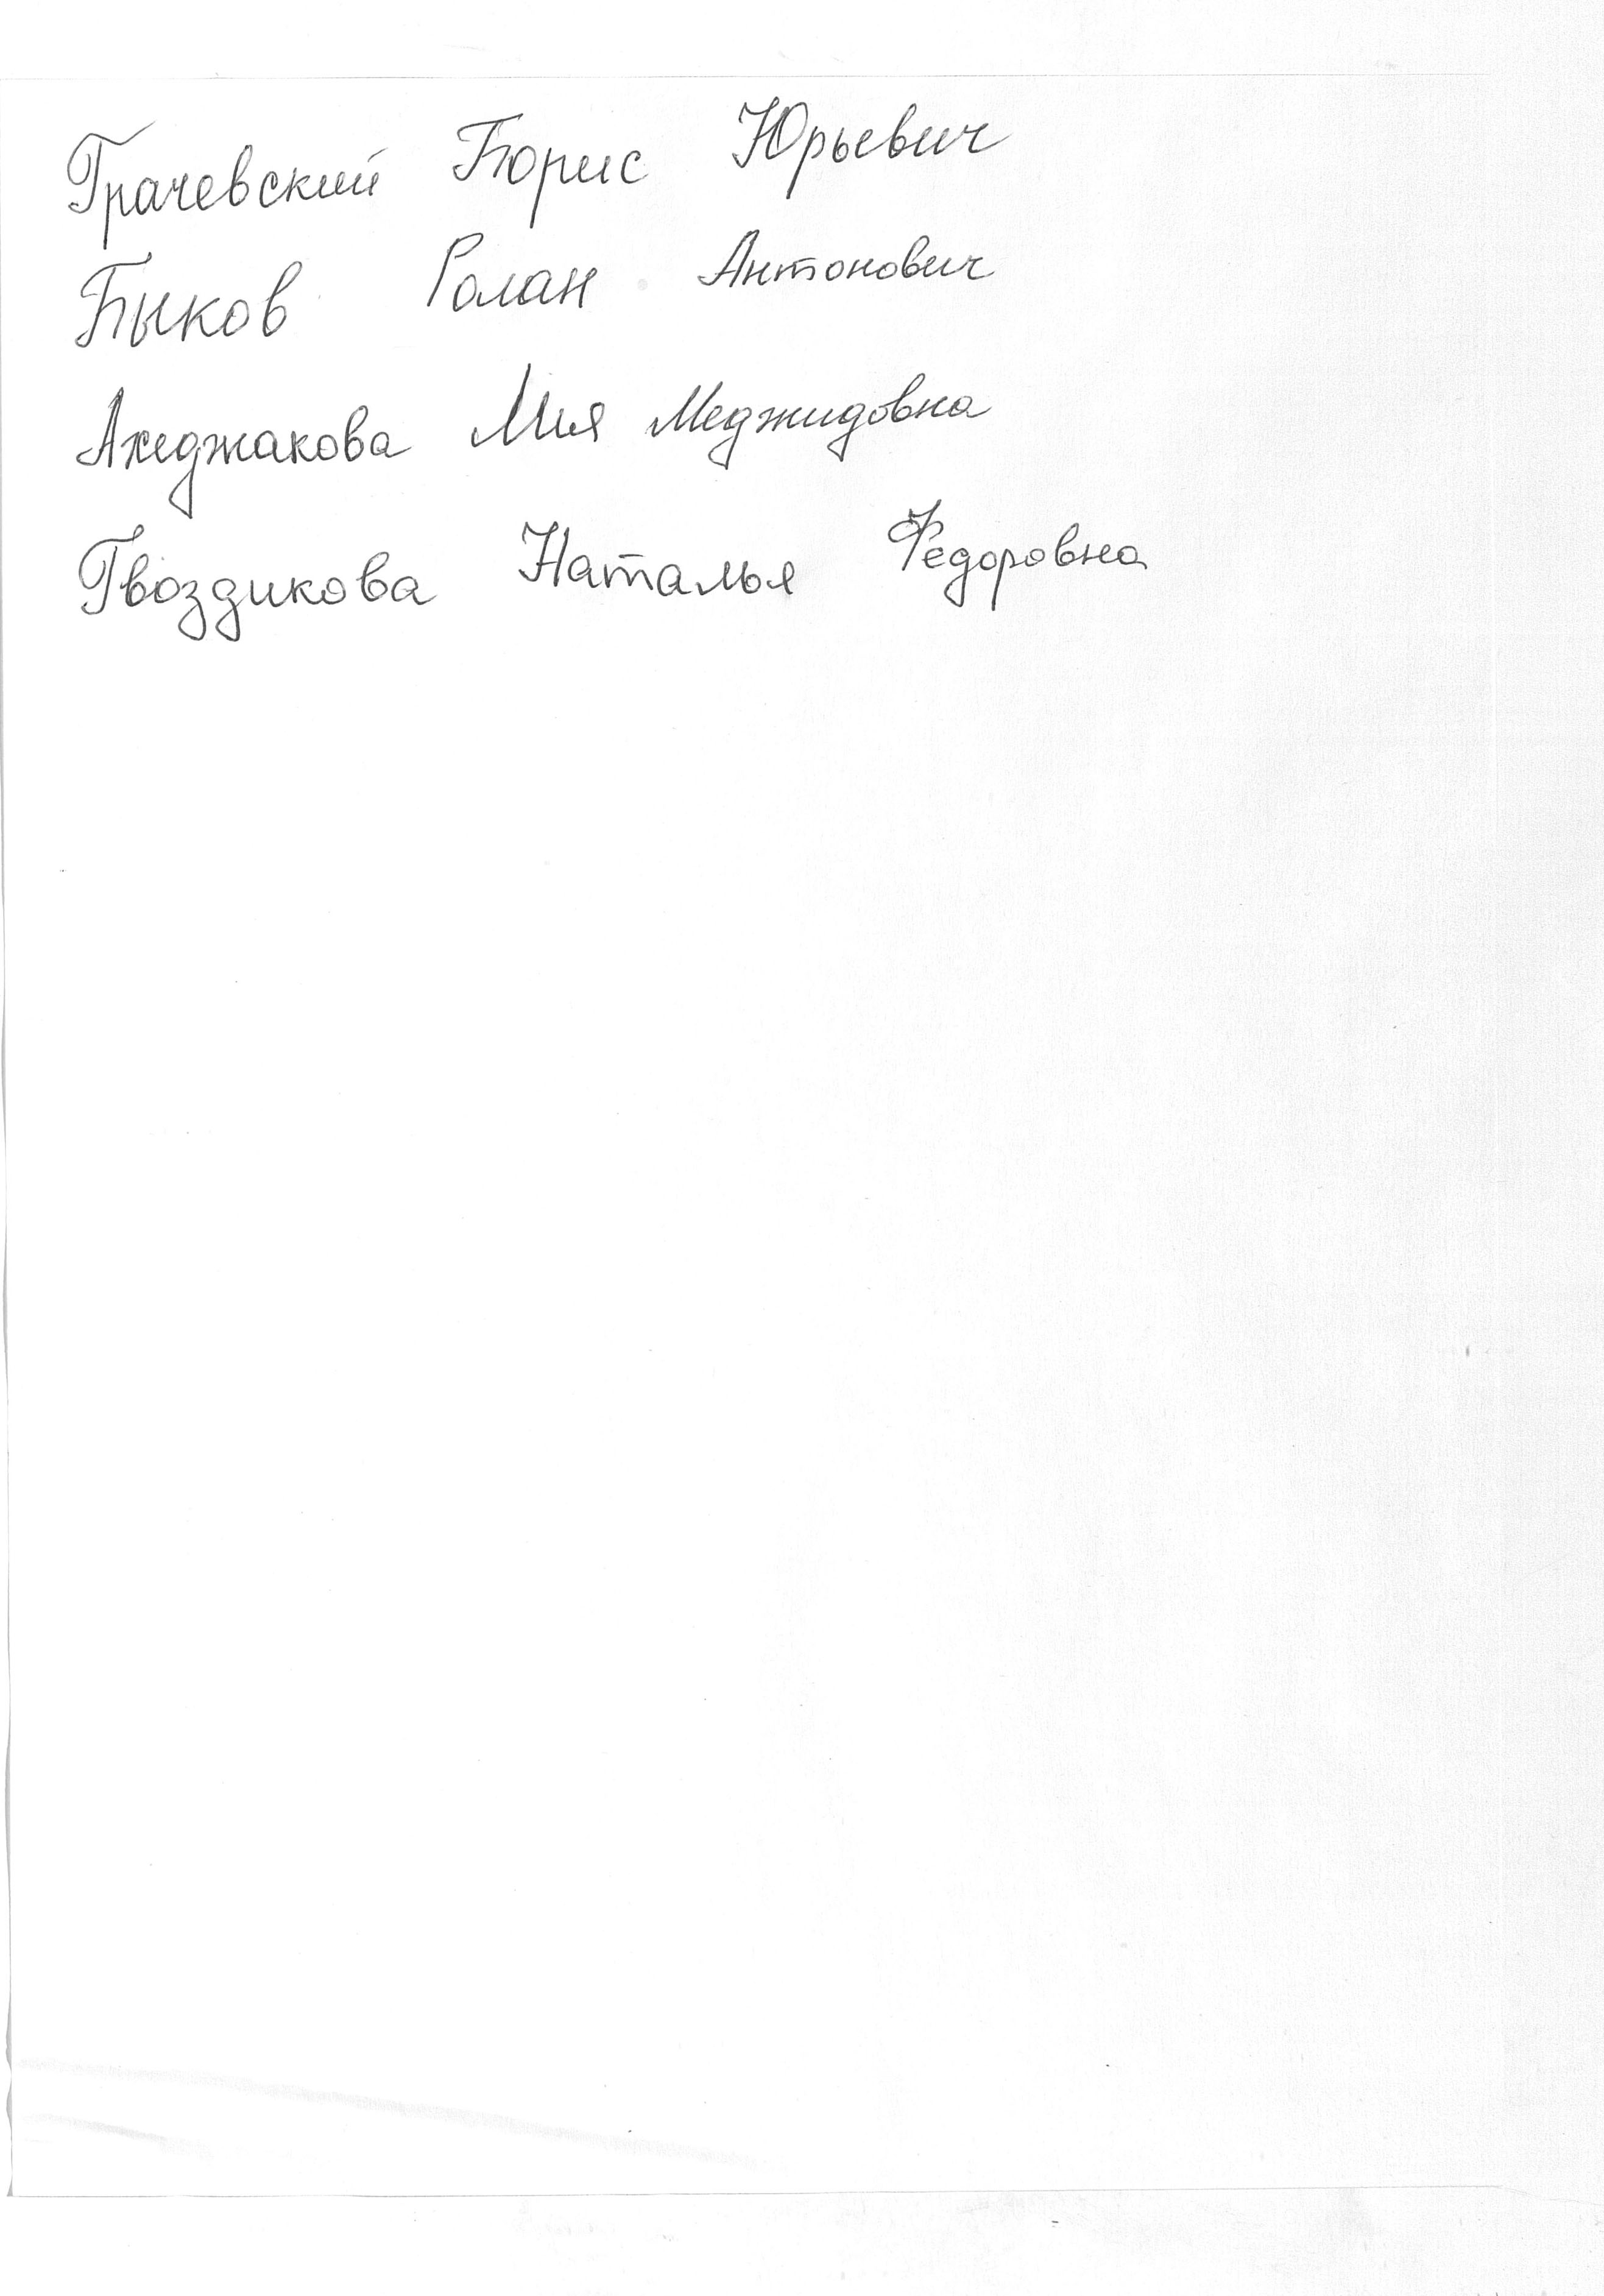 Грачевский Борис Юрьевич
Быков Ролан Антонович
Ахеджакова Лия Меджидовна
Гвоздикова Наталья Федоровна